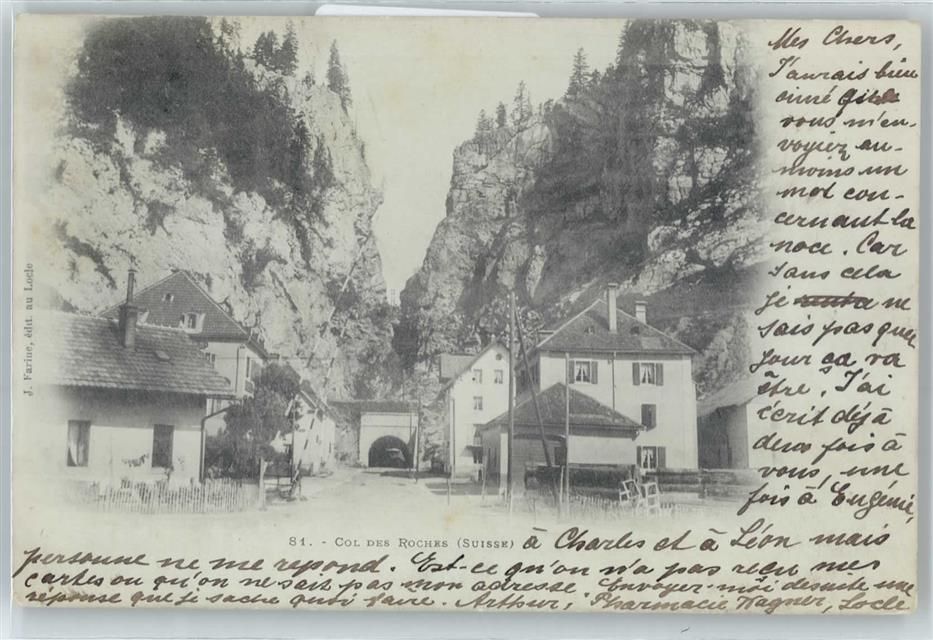 Mes Chers,
J'aurais bien
aimé que
vous m'en-
voyiez au-
moins un
mot con-
cernant la
noce. Car
sans cela
je ne
sais pas quel
jour ça va
être. J'ai
écrit déjà
deux fois à
vous, une
fois à Eugénie,
81. - COL DES ROCHES (SUISSE) à Charles et à Léon mais
personne ne me repond. Est-ce qu'on n'a pas reçu mes
cartes ou qu'on ne sait pas mon adresse. Envoyer-moi desuite une
réponse que je sache quoi faire. Arthur, Pharmacie Wagner, Locle
J. Farine, édit. au Locle